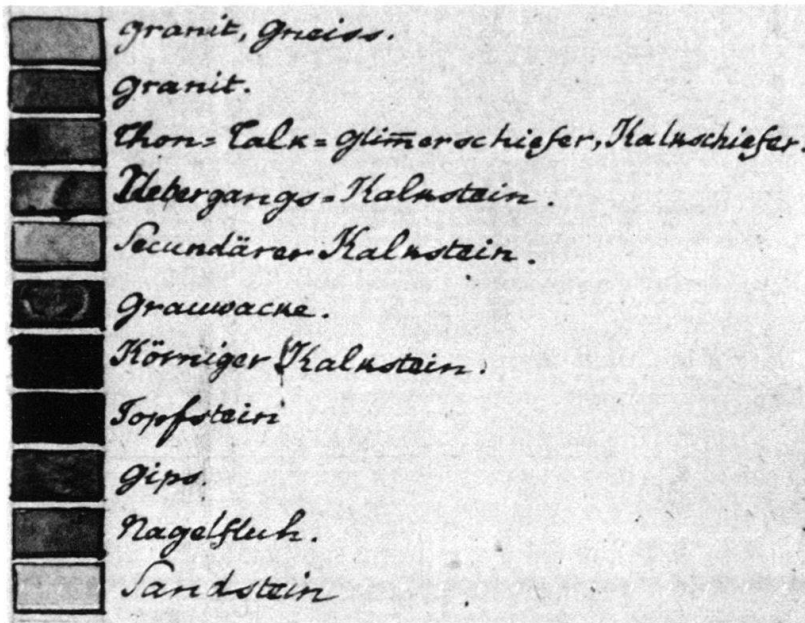 Granit, Gneiss.
Granit.
Thon= Talk= Glim̅erschiefer, Kalkschiefer.
Uebergangs= Kalkstein.
Secundärer Kalkstein.
Grauwacke.
Körniger Kalkstein.
Topfstein
Gips.
Nagelfluh.
Sandstein